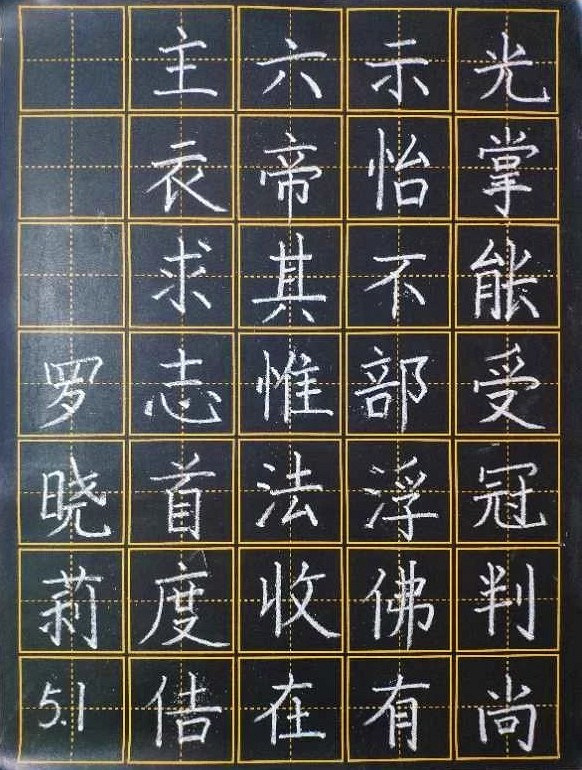 光掌能受冠判尚
示怡不部浮佛有
六帝其惟法收在
主衣求志首度佶
罗晓莉5.1